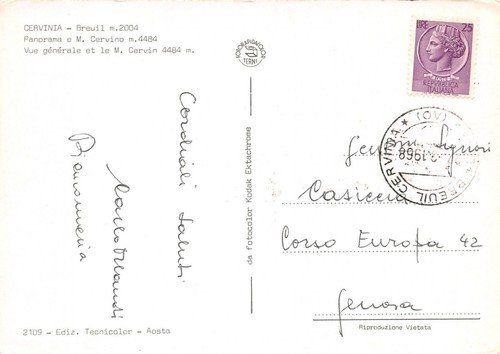 CERVINIA - Breuil m.2004
Panorama e M. Cervino m.4484
Vue générale et le M. Cervin 4484 m.
Cordiali saluti
2109 - Ediz. Tecnicolor - Aosta
da fotocolor Kodak Ektachrome
FOTORAPIDACOLOR
TERNI
LIRE 25
REPUBBLICA
ITALIANA
BREUIL CERVINIA
(AO)
1968
Signori
Casiccia
Corso Europa 42
Genova
Riproduzione Vietata